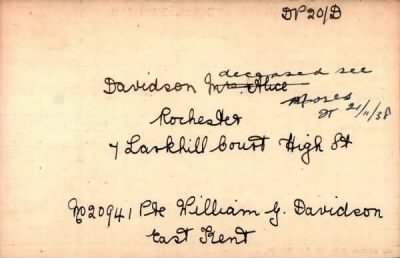 DP20/D
deceased see
Davidson Mrs Alice
Moses
21/11/38
Rochester
7 Larkhill Court High St
No 20941 Pte William G. Davidson
East Kent